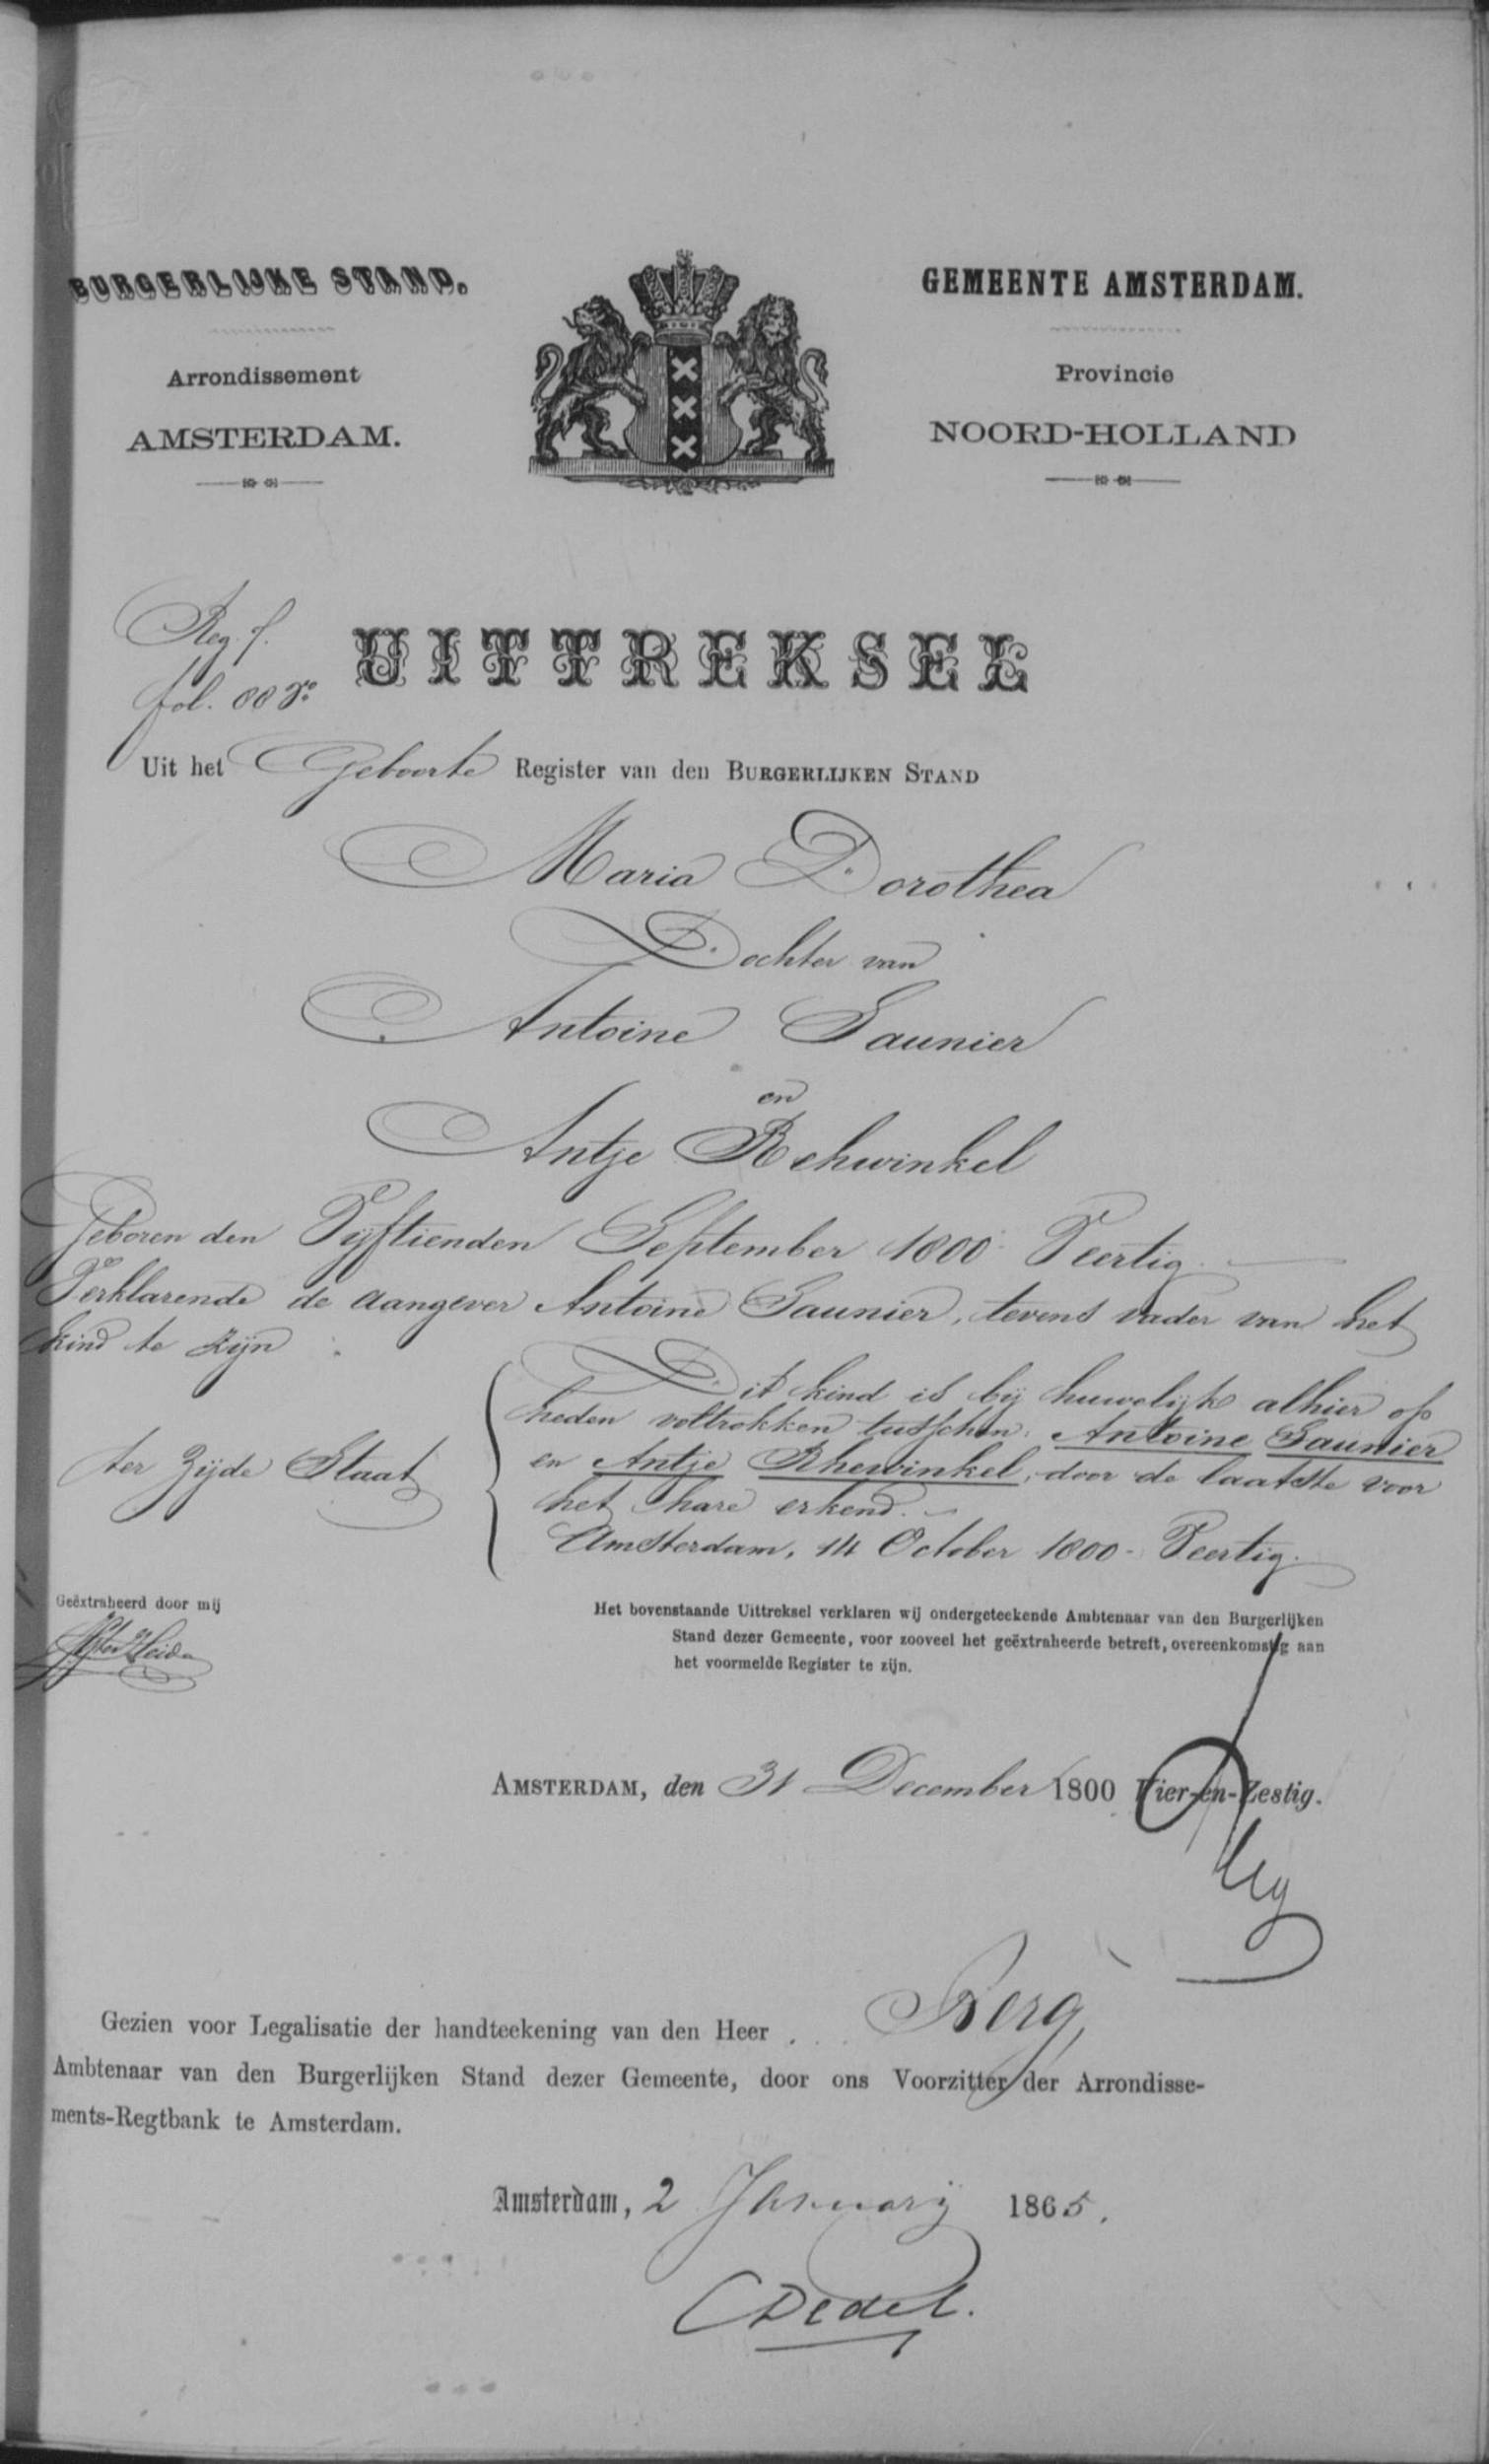 BURGERLIJKE STAND.
GEMEENTE AMSTERDAM.
Arrondissement
AMSTERDAM.
Provincie
NOORD-HOLLAND
Reg.
fol.
UITTREKSEL
Uit het Geboorte Register van den BURGERLIJKEN STAND
Maria Dorothea
Dochter van
Antoine Saunier
en
Antje Rehwinkel
Geboren den Vijftienden September 1800 Veertig
Verklarende de aangever Antoine Saunier, tevens vader van het
kind te zijn
ter zijde Staat
Dit kind is bij huwelijk alhier op
heden voltrokken tusschen Antoine Saunier
en Antje Rhewinkel, door de laatste voor
het hare erkend.
Amsterdam, 14 October 1800 - Veertig.
Geëxtraheerd door mij
Het bovenstaande Uittreksel verklaren wij ondergeteekende Ambtenaar van den Burgerlijken
Stand dezer Gemeente, voor zooveel het geëxtraheerde betreft, overeenkomstig aan
het voormelde Register te zijn.
AMSTERDAM, den 31 December 1800 Vier-en-Zestig.
Gezien voor Legalisatie der handteekening van den Heer Berg,
Ambtenaar van den Burgerlijken Stand dezer Gemeente, door ons Voorzitter der Arrondisse-
ments-Regtbank te Amsterdam.
Amsterdam, 2 Januarij 1865.
CDedel.